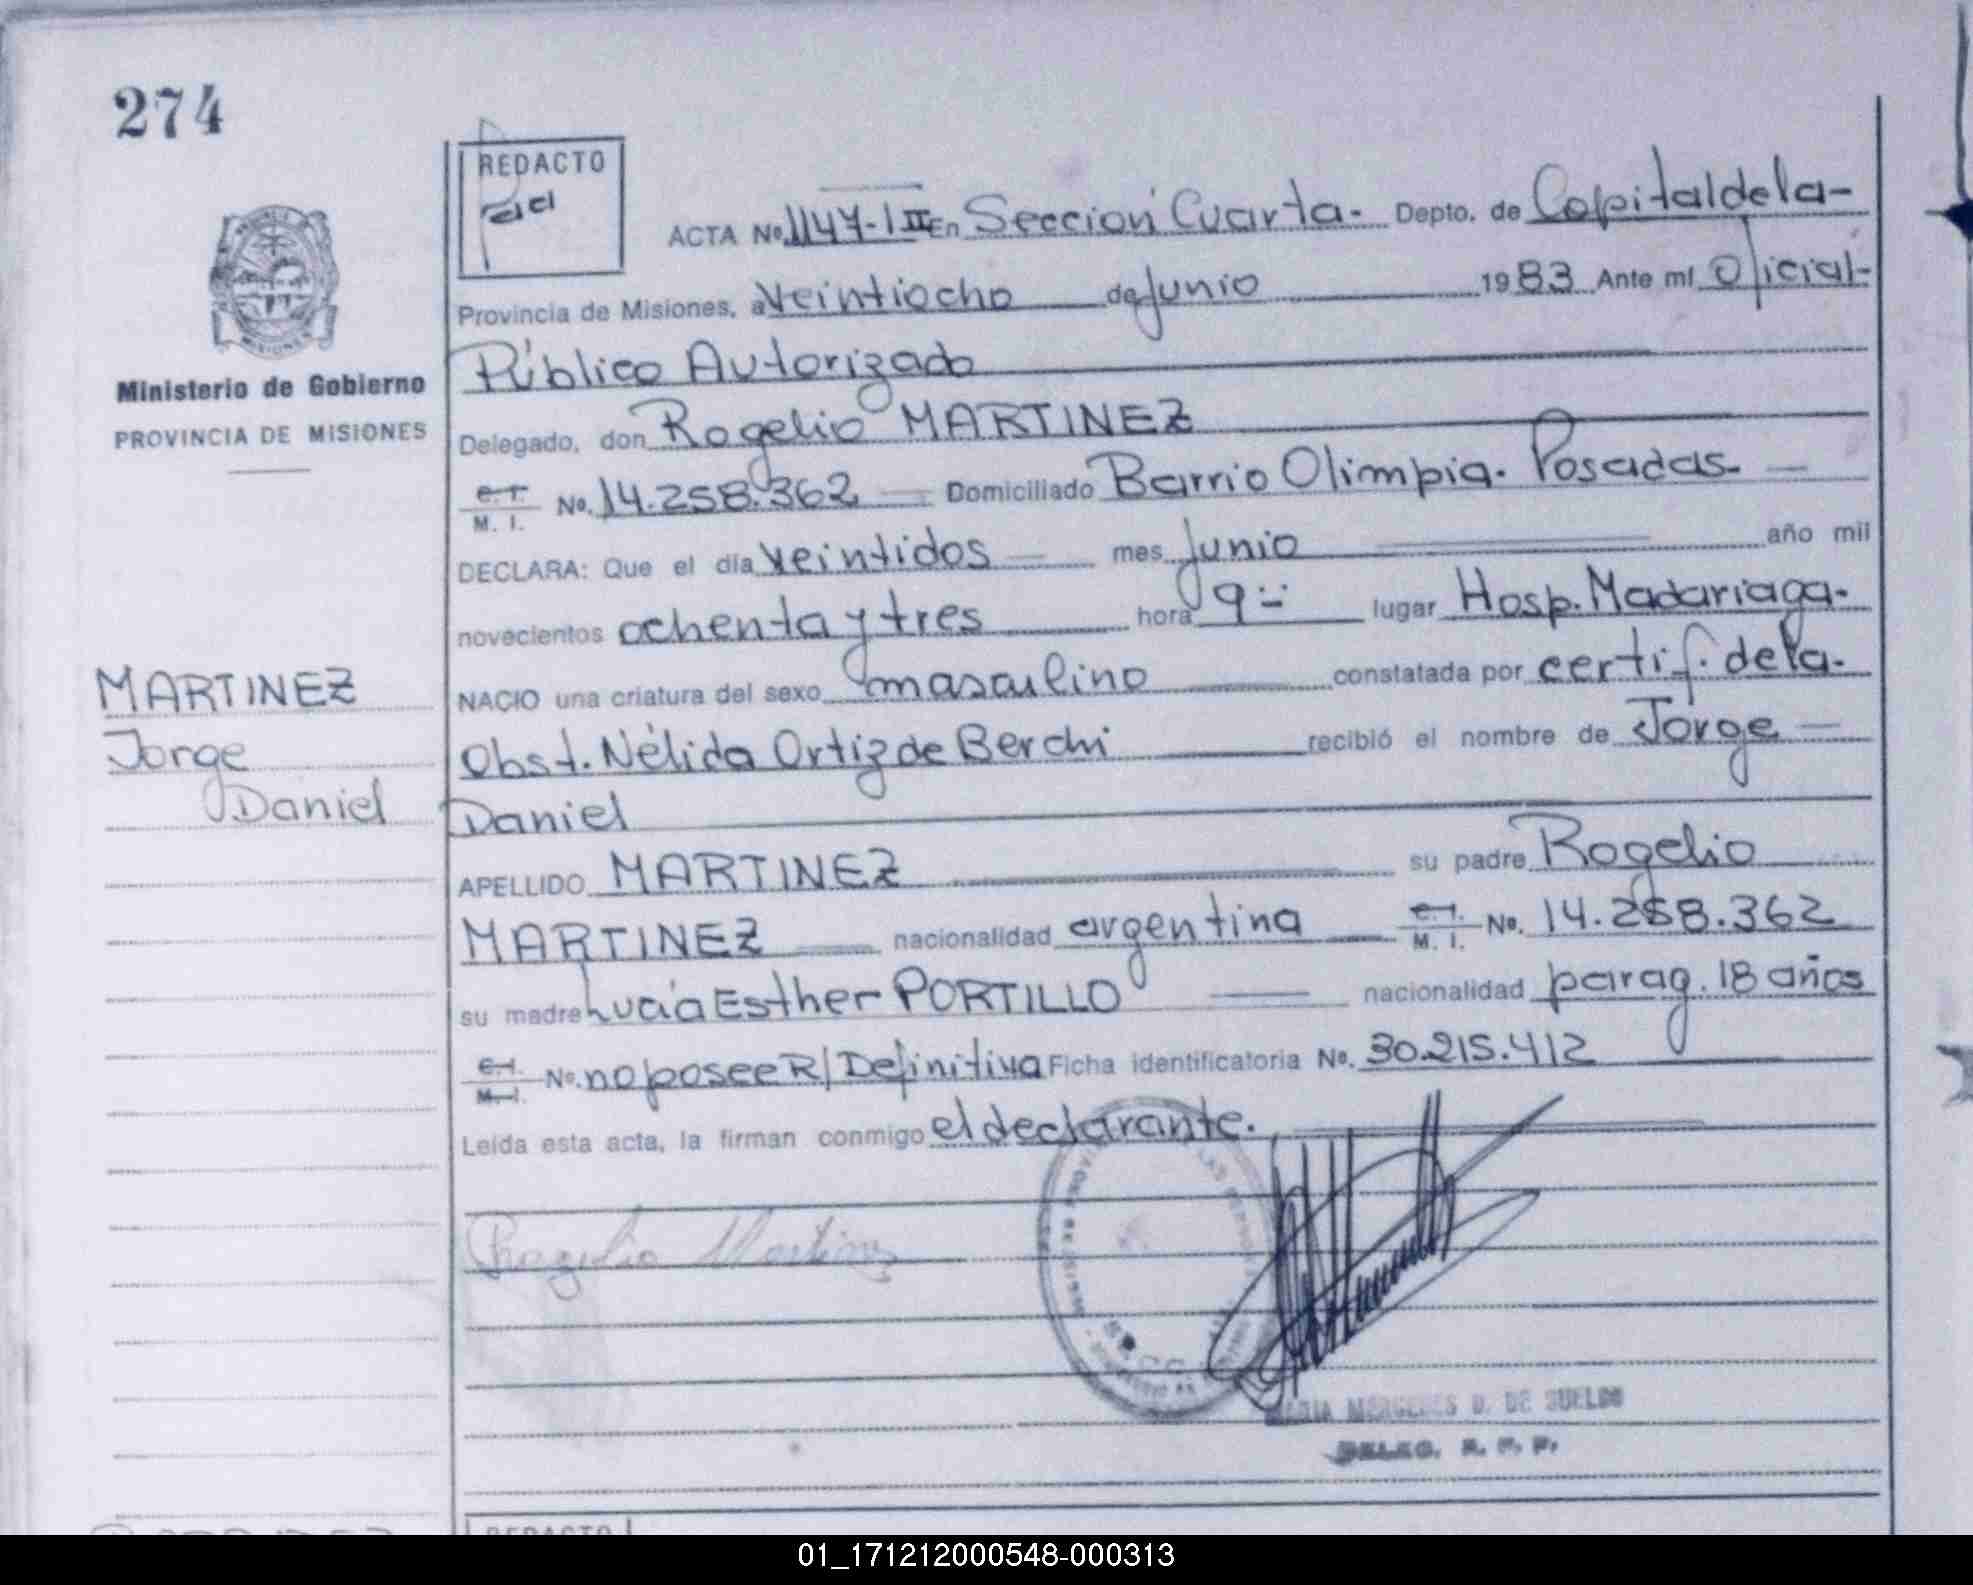 274
REDACTO
ACTA No. 1147-III En Sección Cuarta.- Depto. de Capital de la-
Provincia de Misiones, a Veintiocho de Junio 1983 Ante mí Oficial-
Público Autorizado
MISIONES
Ministerio de Gobierno
PROVINCIA DE MISIONES
Delegado, don Rogelio MARTINEZ
C. I.
M. I. No. 14.258.362 Domiciliado Barrio Olimpia. Posadas.
DECLARA: Que el día veintidos mes Junio año mil
novecientos ochenta y tres hora 9 lugar Hosp. Madariaga.
NACIO una criatura del sexo masculino constatada por certif. de la.
Obst. Nélida Ortiz de Berchi recibió el nombre de Jorge
Daniel
MARTINEZ
Jorge
Daniel
APELLIDO MARTINEZ su padre Rogelio
MARTINEZ nacionalidad argentina C. I. M. I. No. 14.258.362
su madre Lucía Esther PORTILLO nacionalidad parag. 18 años
C. I.
M. I. No. no posee R/Definitiva Ficha identificatoria No. 30.215.412
Leída esta acta, la firman conmigo el declarante.
Rogelio Martinez
MARIA MERCEDES D. DE SUELDO
DELEG. R. P. P.
REDACTO
01_171212000548-000313